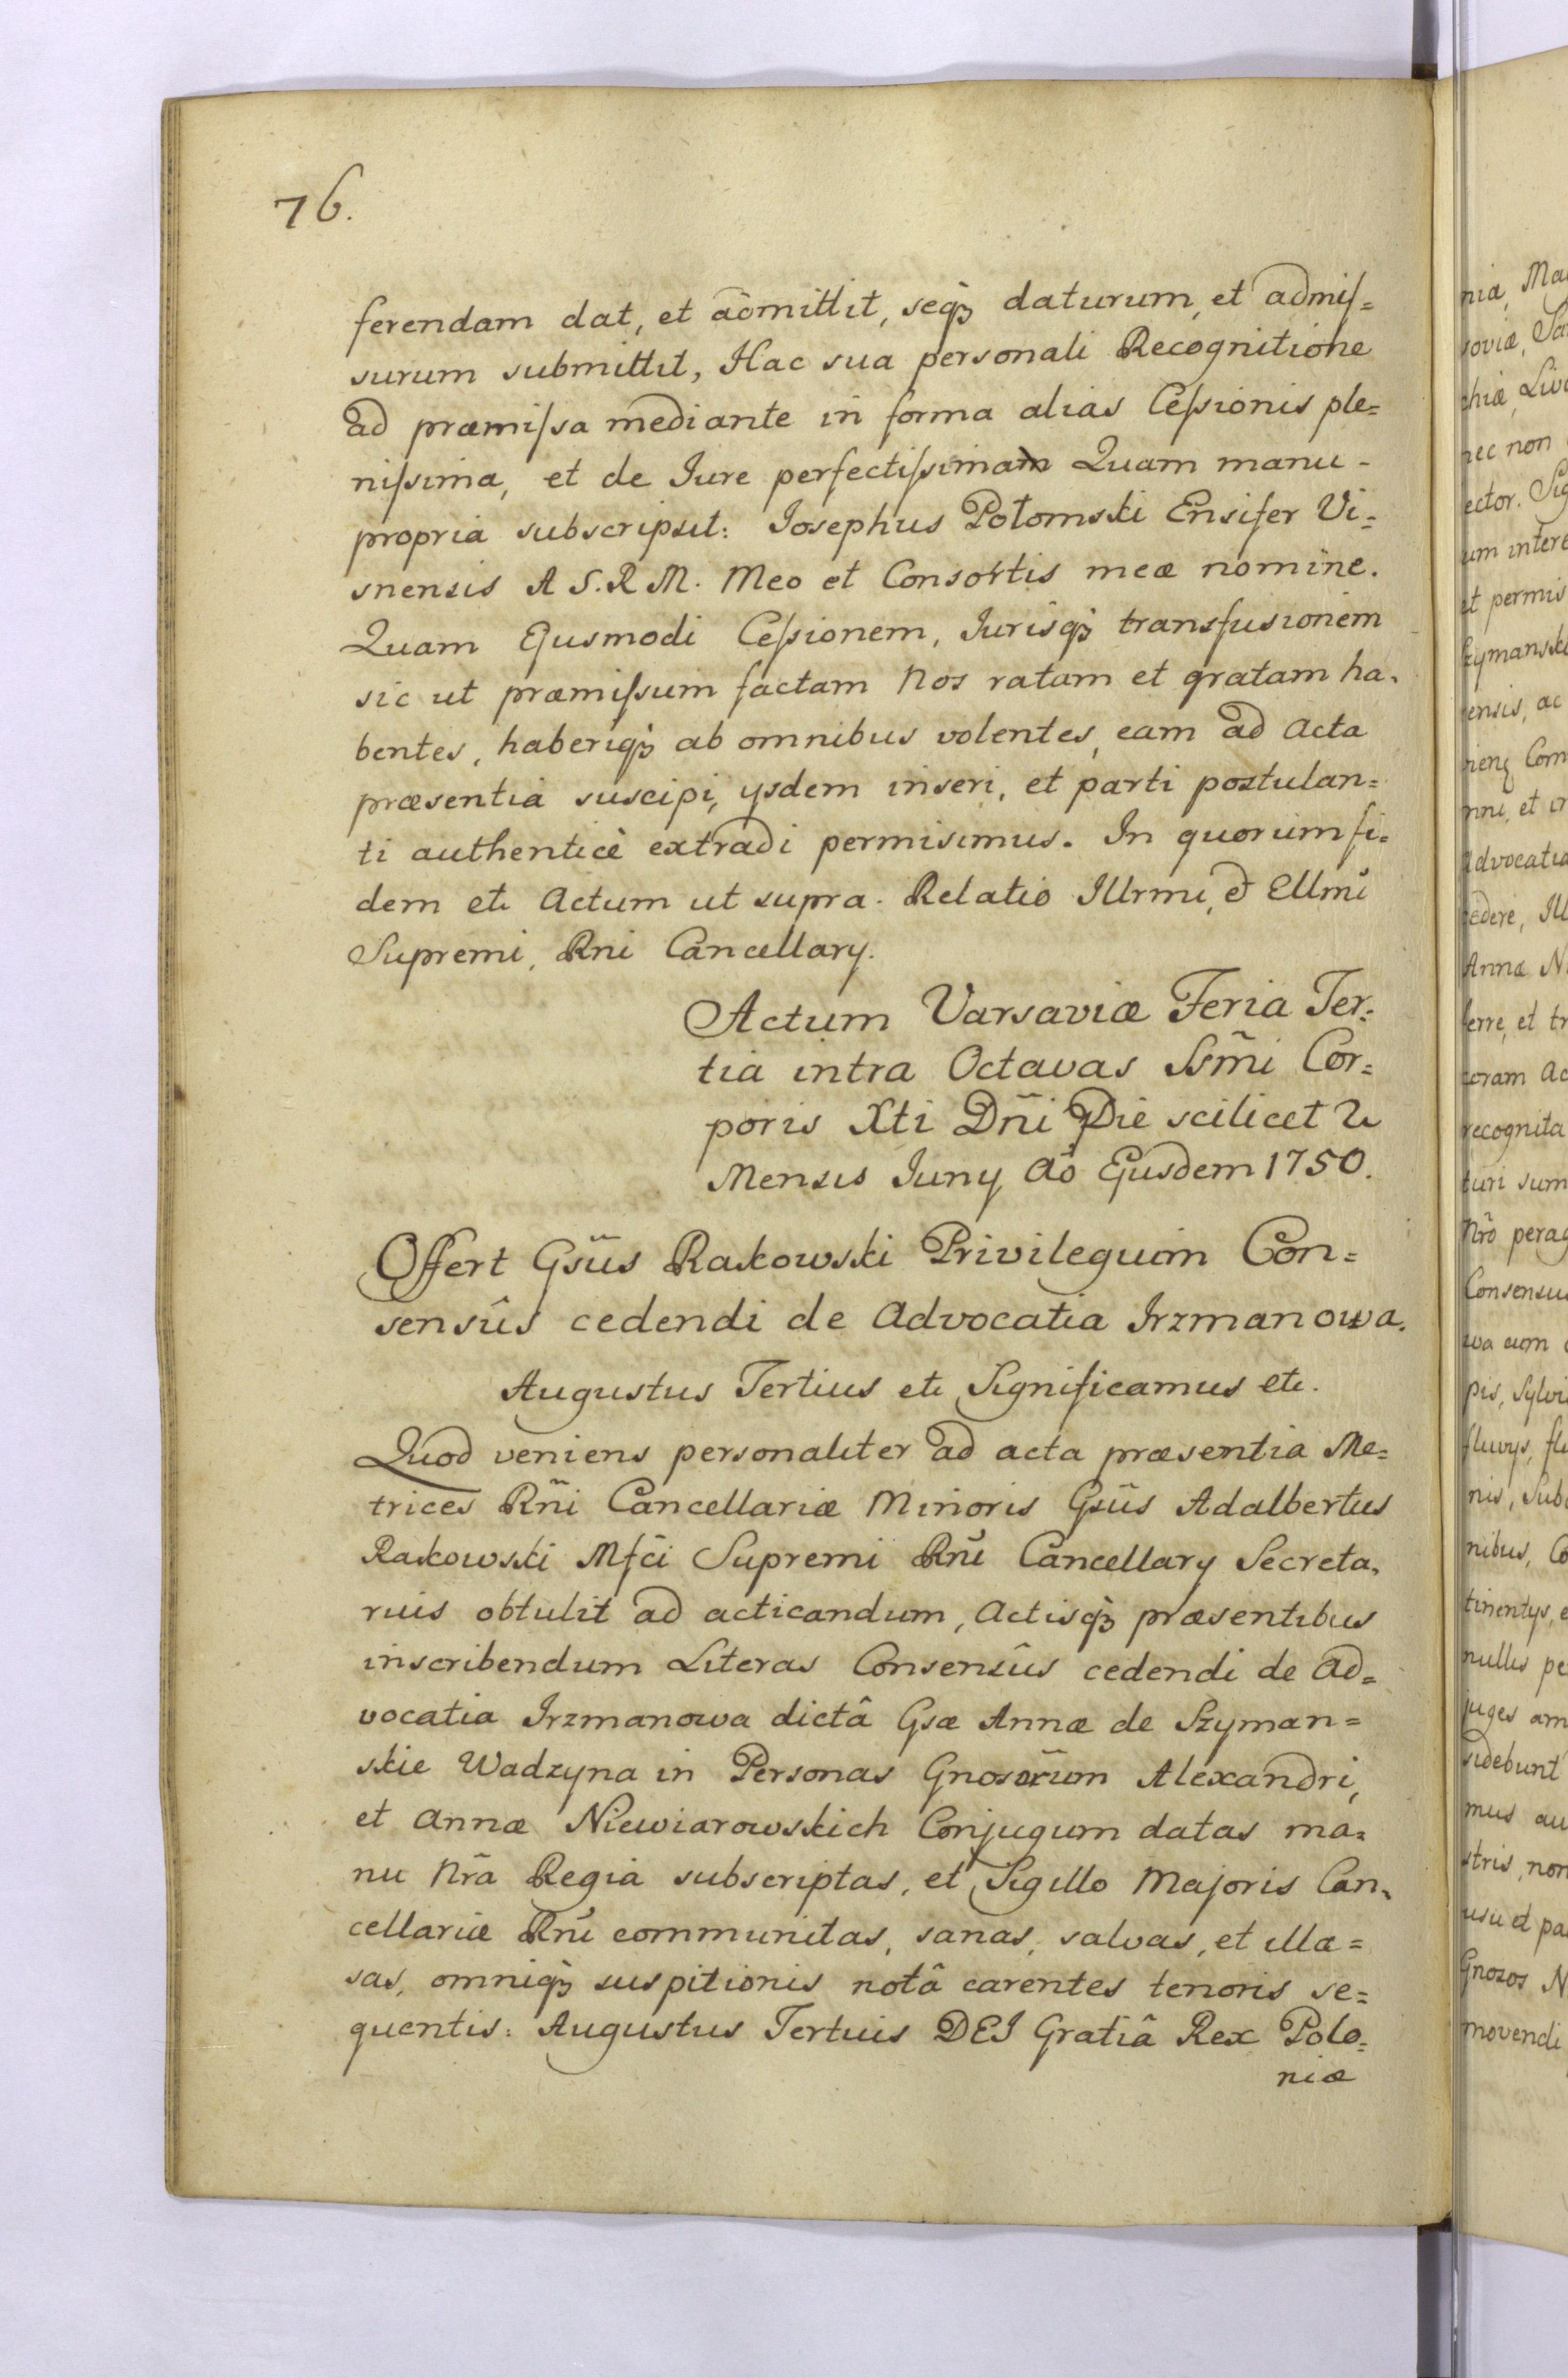 76.
ferendam dat, et admittit, seqꝫ daturum, et admiſ=
surum submittit, Hac sua personali Recognitione
ad præmiſsa mediante in forma alias Ceſsionis ple=
niſsima, et de Iure perfectiſsimam Quam manu-
propria subscripsit: Iosephus Połomski Ensifer Vi=
snensis A S. R M. Meo et Consortis meæ nomine.
Quam Ejusmodi Ceſsionem, Iurisqꝫ transfusionem
sic ut præmiſsum factam Nos ratam et gratam ha=
bentes, haberiqꝫ ab omnibus volentes, eam ad Acta
præsentia suscipi, ysdem inseri, et parti postulan=
ti authenticè extradi permisimus. In quorum fi=
dem etc Actum ut supra. Relatio Illrmi, & Ellmi
Supremi, Rni Cancellary.
Actum Varsaviæ Feria Ter=
tia intra Octavas Ssm̃i Cor=
poris Xti Dñi Die scilicet 2
Mensis Iuny Aõ Ejusdem 1750.
Offert Gsus Rakowski Privilegium Con=
sensûs cedendi de Advocatia Irzmanowa.
Augustus Tertius etc Significamus etc.
Quod veniens personaliter ad acta præsentia Me=
trices Rñi Cancellariæ Minoris Gsus Adalbertus
Rakowski Mfci Supremi Rni Cancellary Secreta=
rius obtulit ad acticandum, Actisqꝫ præsentibus
inscribendum Literas Consensûs cedendi de Ad=
vocatia Irzmanowa dictâ Gsæ Annæ de Szyman=
skie Wadzyna in Personas Gnosorum Alexandri,
et Annæ Niewiarowskich Conjugum datas ma=
nu Nrã Regia subscriptas, et Sigillo Majoris Can=
cellariæ Rni communitas, sanas, salvas, et illæ=
sas, omniqꝫ suspitionis notâ carentes tenoris se=
quentis: Augustus Tertius DEI Gratiâ Rex Polo=
niæ